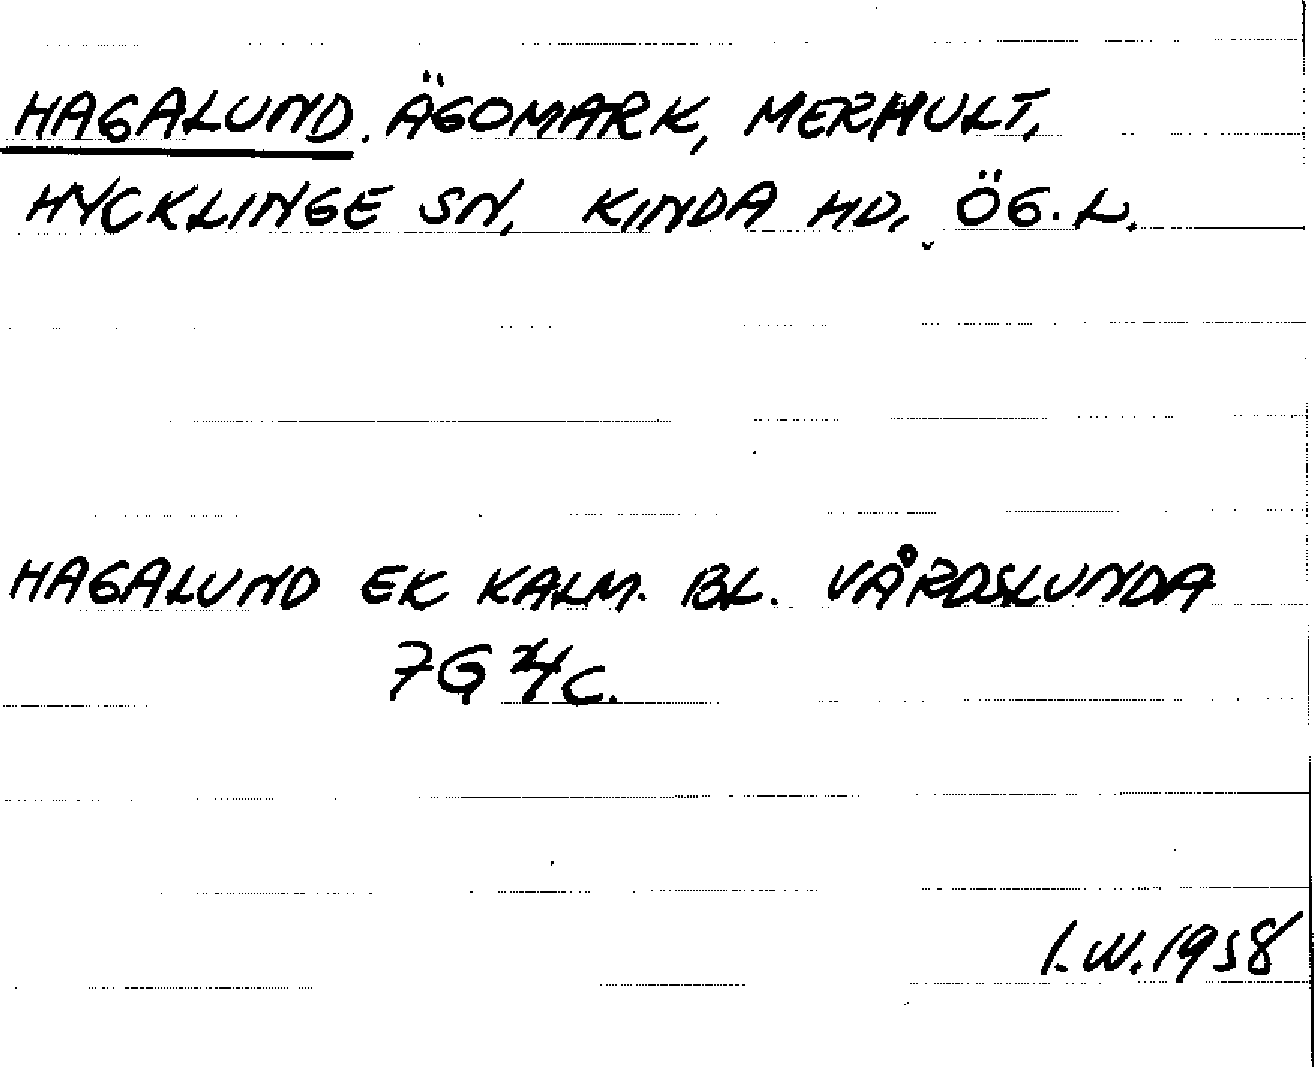 HAGALUND. ÄGOMARK, MERHULT,
HYCKLINGE SN, KINDA HD, ÖG.L.
HAGALUND EK KALM. BL. VÅRDSLUNDA
7G 4c.
I.W. 1958